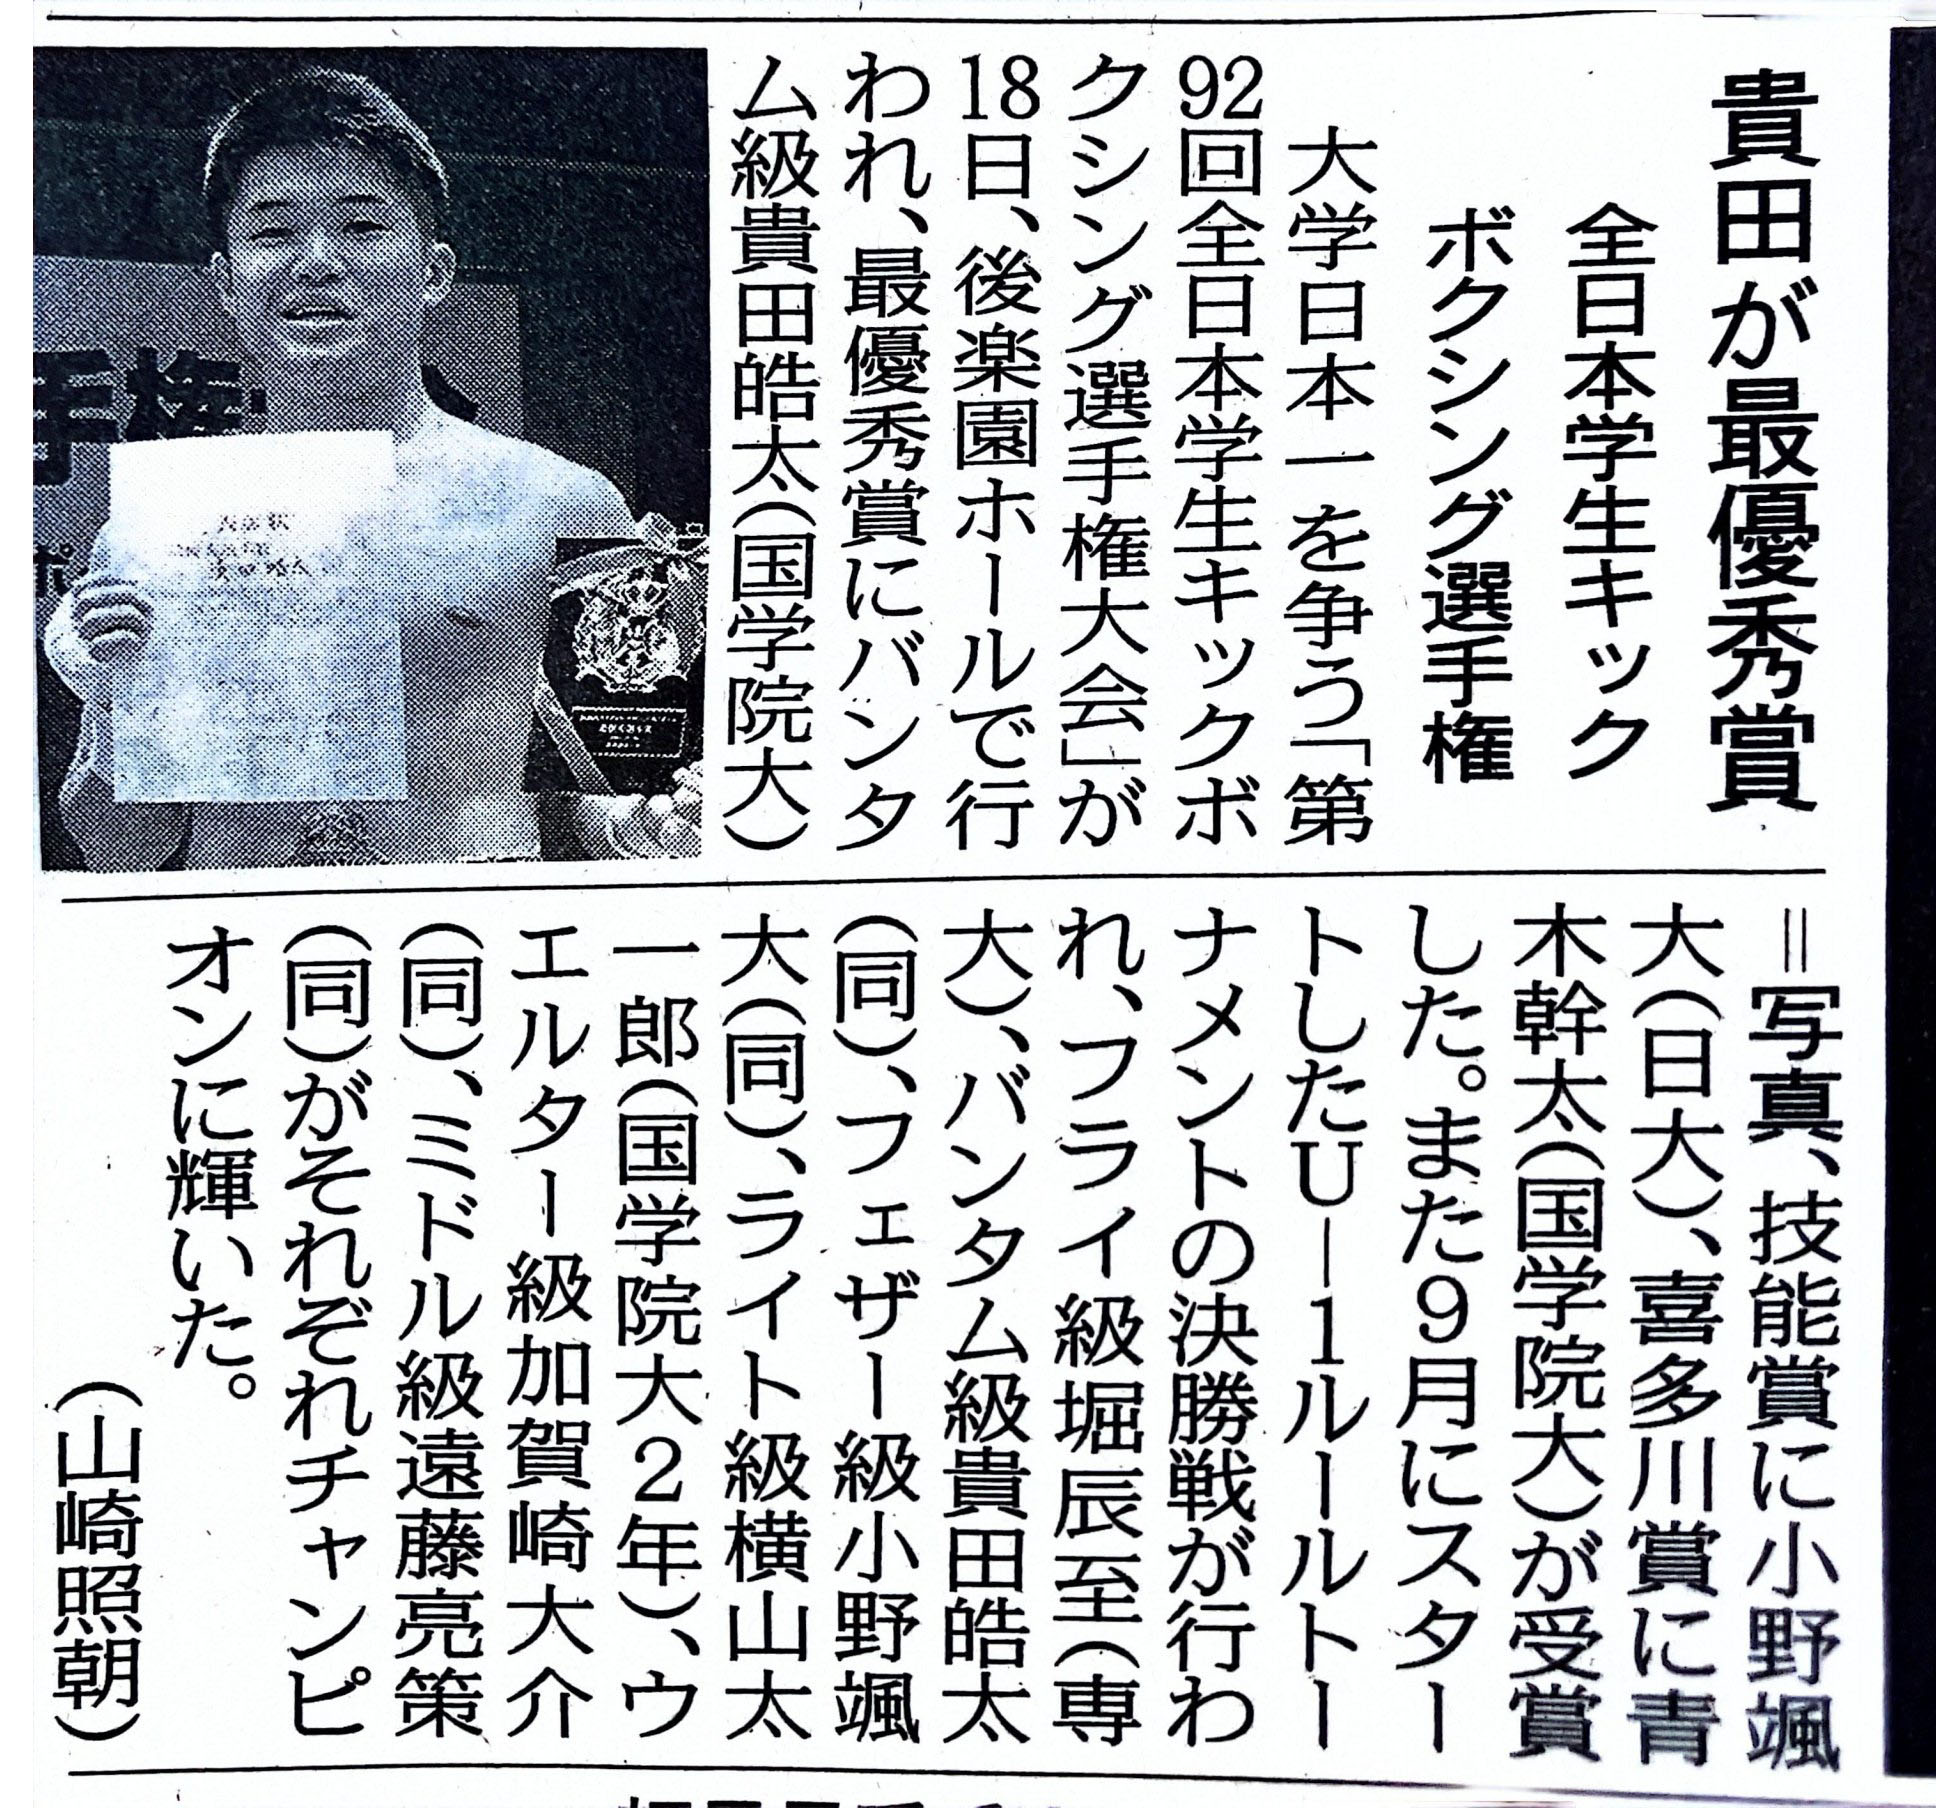 貴田が最優秀賞
全日本学生キック
ボクシング選手権
大学日本一を争う「第
92回全日本学生キックボ
クシング選手権大会」が
18日、後楽園ホールで行
われ、最優秀賞にバンタ
ム級貴田皓太(国学院大)
=写真、技能賞に小野颯
大(日大)、喜多川賞に青
木幹太(国学院大)が受賞
した。また9月にスター
トしたU―1ルールトー
ナメントの決勝戦が行わ
れ、フライ級堀辰至(専
大)、バンタム級貴田皓太
(同)、フェザー級小野颯
大(同)、ライト級横山太
一郎(国学院大2年)、ウ
エルター級加賀崎大介
(同)、ミドル級遠藤亮策
(同)がそれぞれチャンピ
オンに輝いた。
(山崎照朝)
手権